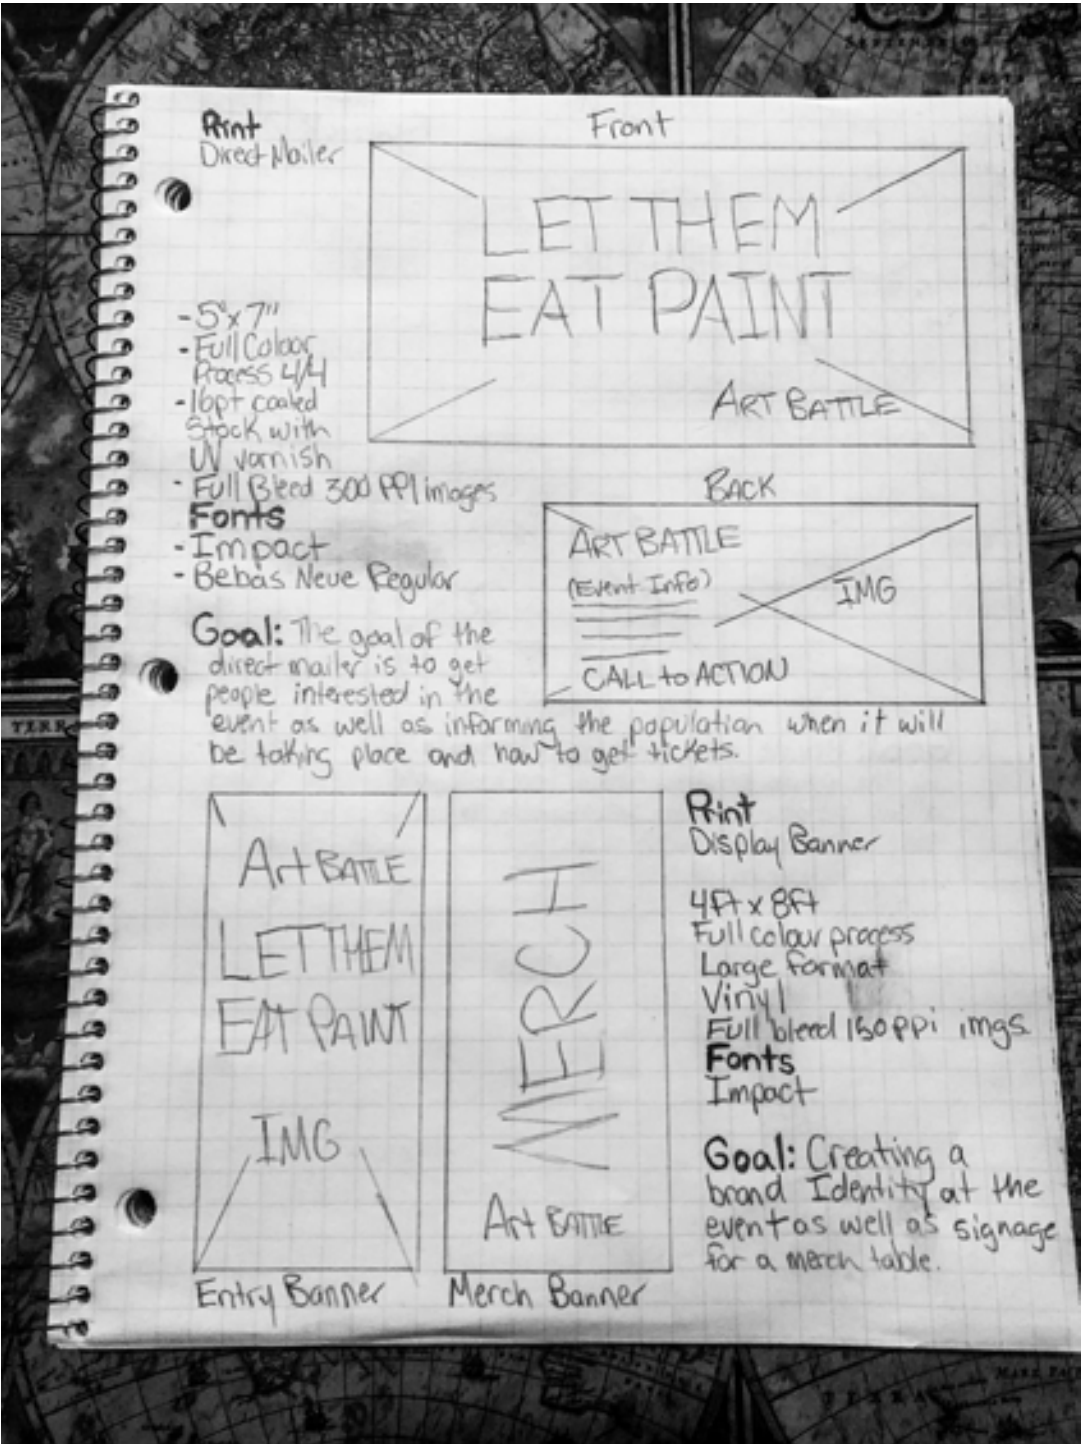 Print
Direct Mailer
Front
LET THEM
EAT PAINT
ART BATTLE
- 5"x 7"
- Full Colour
Process 4/4
- 16pt coated
Stock with
UV varnish
- Full Bleed 300 PPI images
Fonts
- Impact
- Bebas Neue Regular
BACK
ART BATTLE
(Event Info)
CALL to ACTION
IMG
Goal: The goal of the
direct mailer is to get
people interested in the
event as well as informing the population when it will
be taking place and how to get tickets.
Art BATTLE
LET THEM
EAT PAINT
IMG
Entry Banner
MERCH
Art BATTLE
Merch Banner
Print
Display Banner
4ft x 8ft
Full colour process
Large format
Vinyl
Full bleed 150 ppi imgs
Fonts
Impact
Goal: Creating a
brand Identity at the
event as well as signage
for a merch table.
TERR